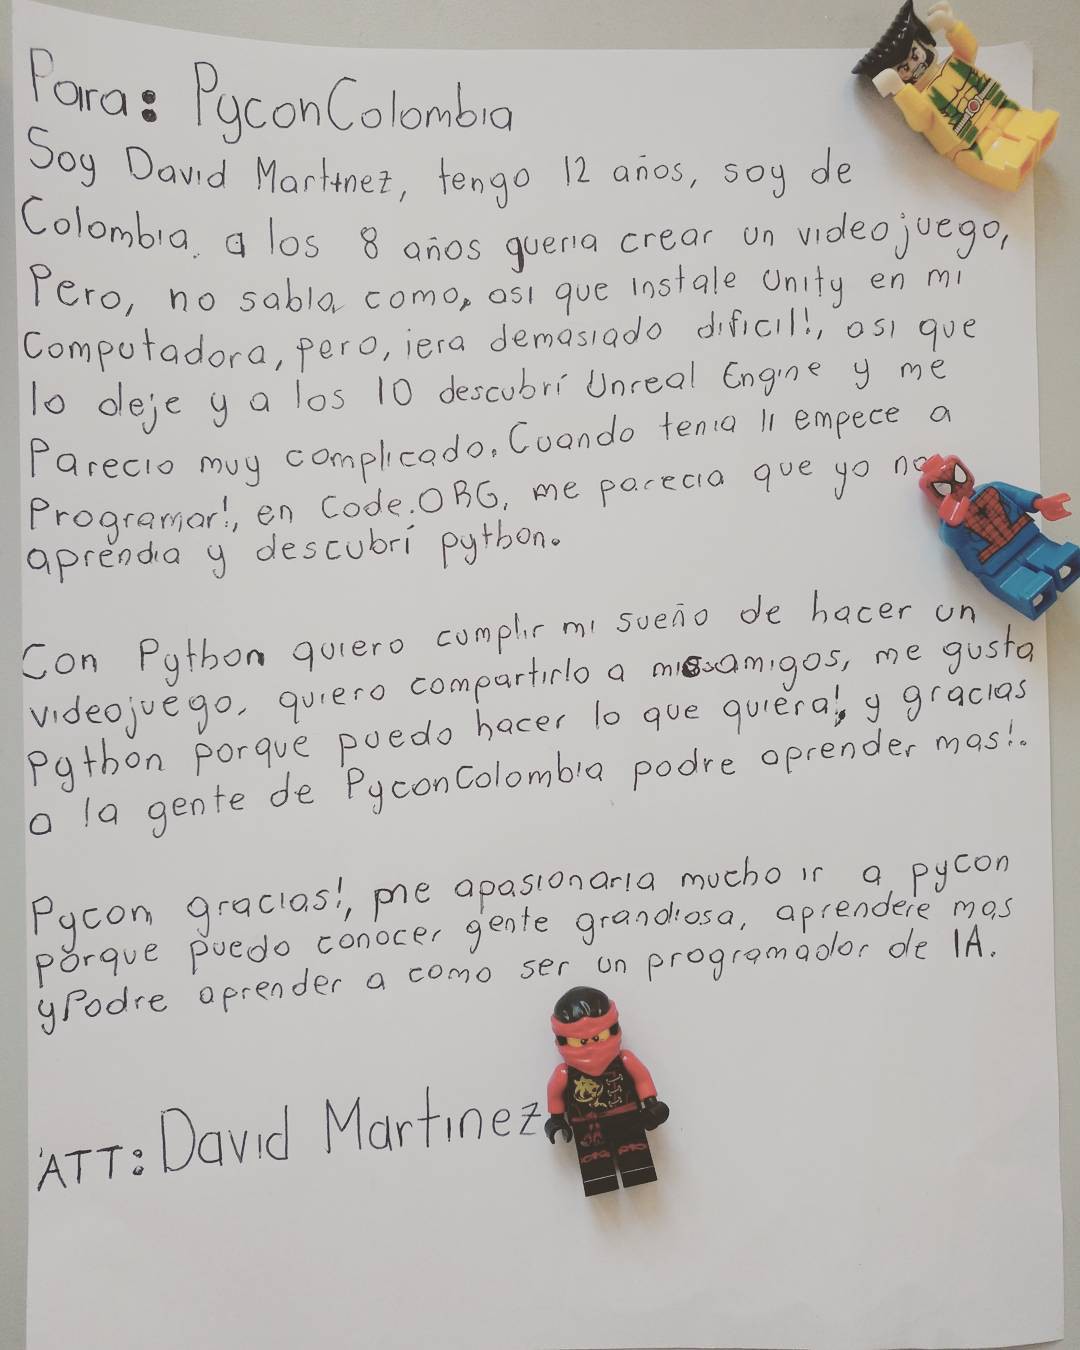 Para: PyconColombia
Soy David Martinez, tengo 12 años, soy de
Colombia. a los 8 años queria crear un videojuego,
Pero, no sabia como, asi que instale Unity en mi
Computadora, pero, ¡era demasiado dificil!, asi que
lo deje y a los 10 descubrí Unreal Engine y me
Parecio muy complicado. Cuando tenia 11 empece a
Programar!, en Code.ORG, me parecia que yo no
aprendia y descubrí python.
Con Python quiero cumplir mi sueño de hacer un
videojuego, quiero compartirlo a mis amigos, me gusta
Python porque puedo hacer lo que quiera!, y gracias
a la gente de PyconColombia podre aprender mas!.
Pycon gracias!, me apasionaria mucho ir a pycon
porque puedo conocer gente grandiosa, aprendere mas
y Podre aprender a como ser un programador de IA.
ATT: David Martinez